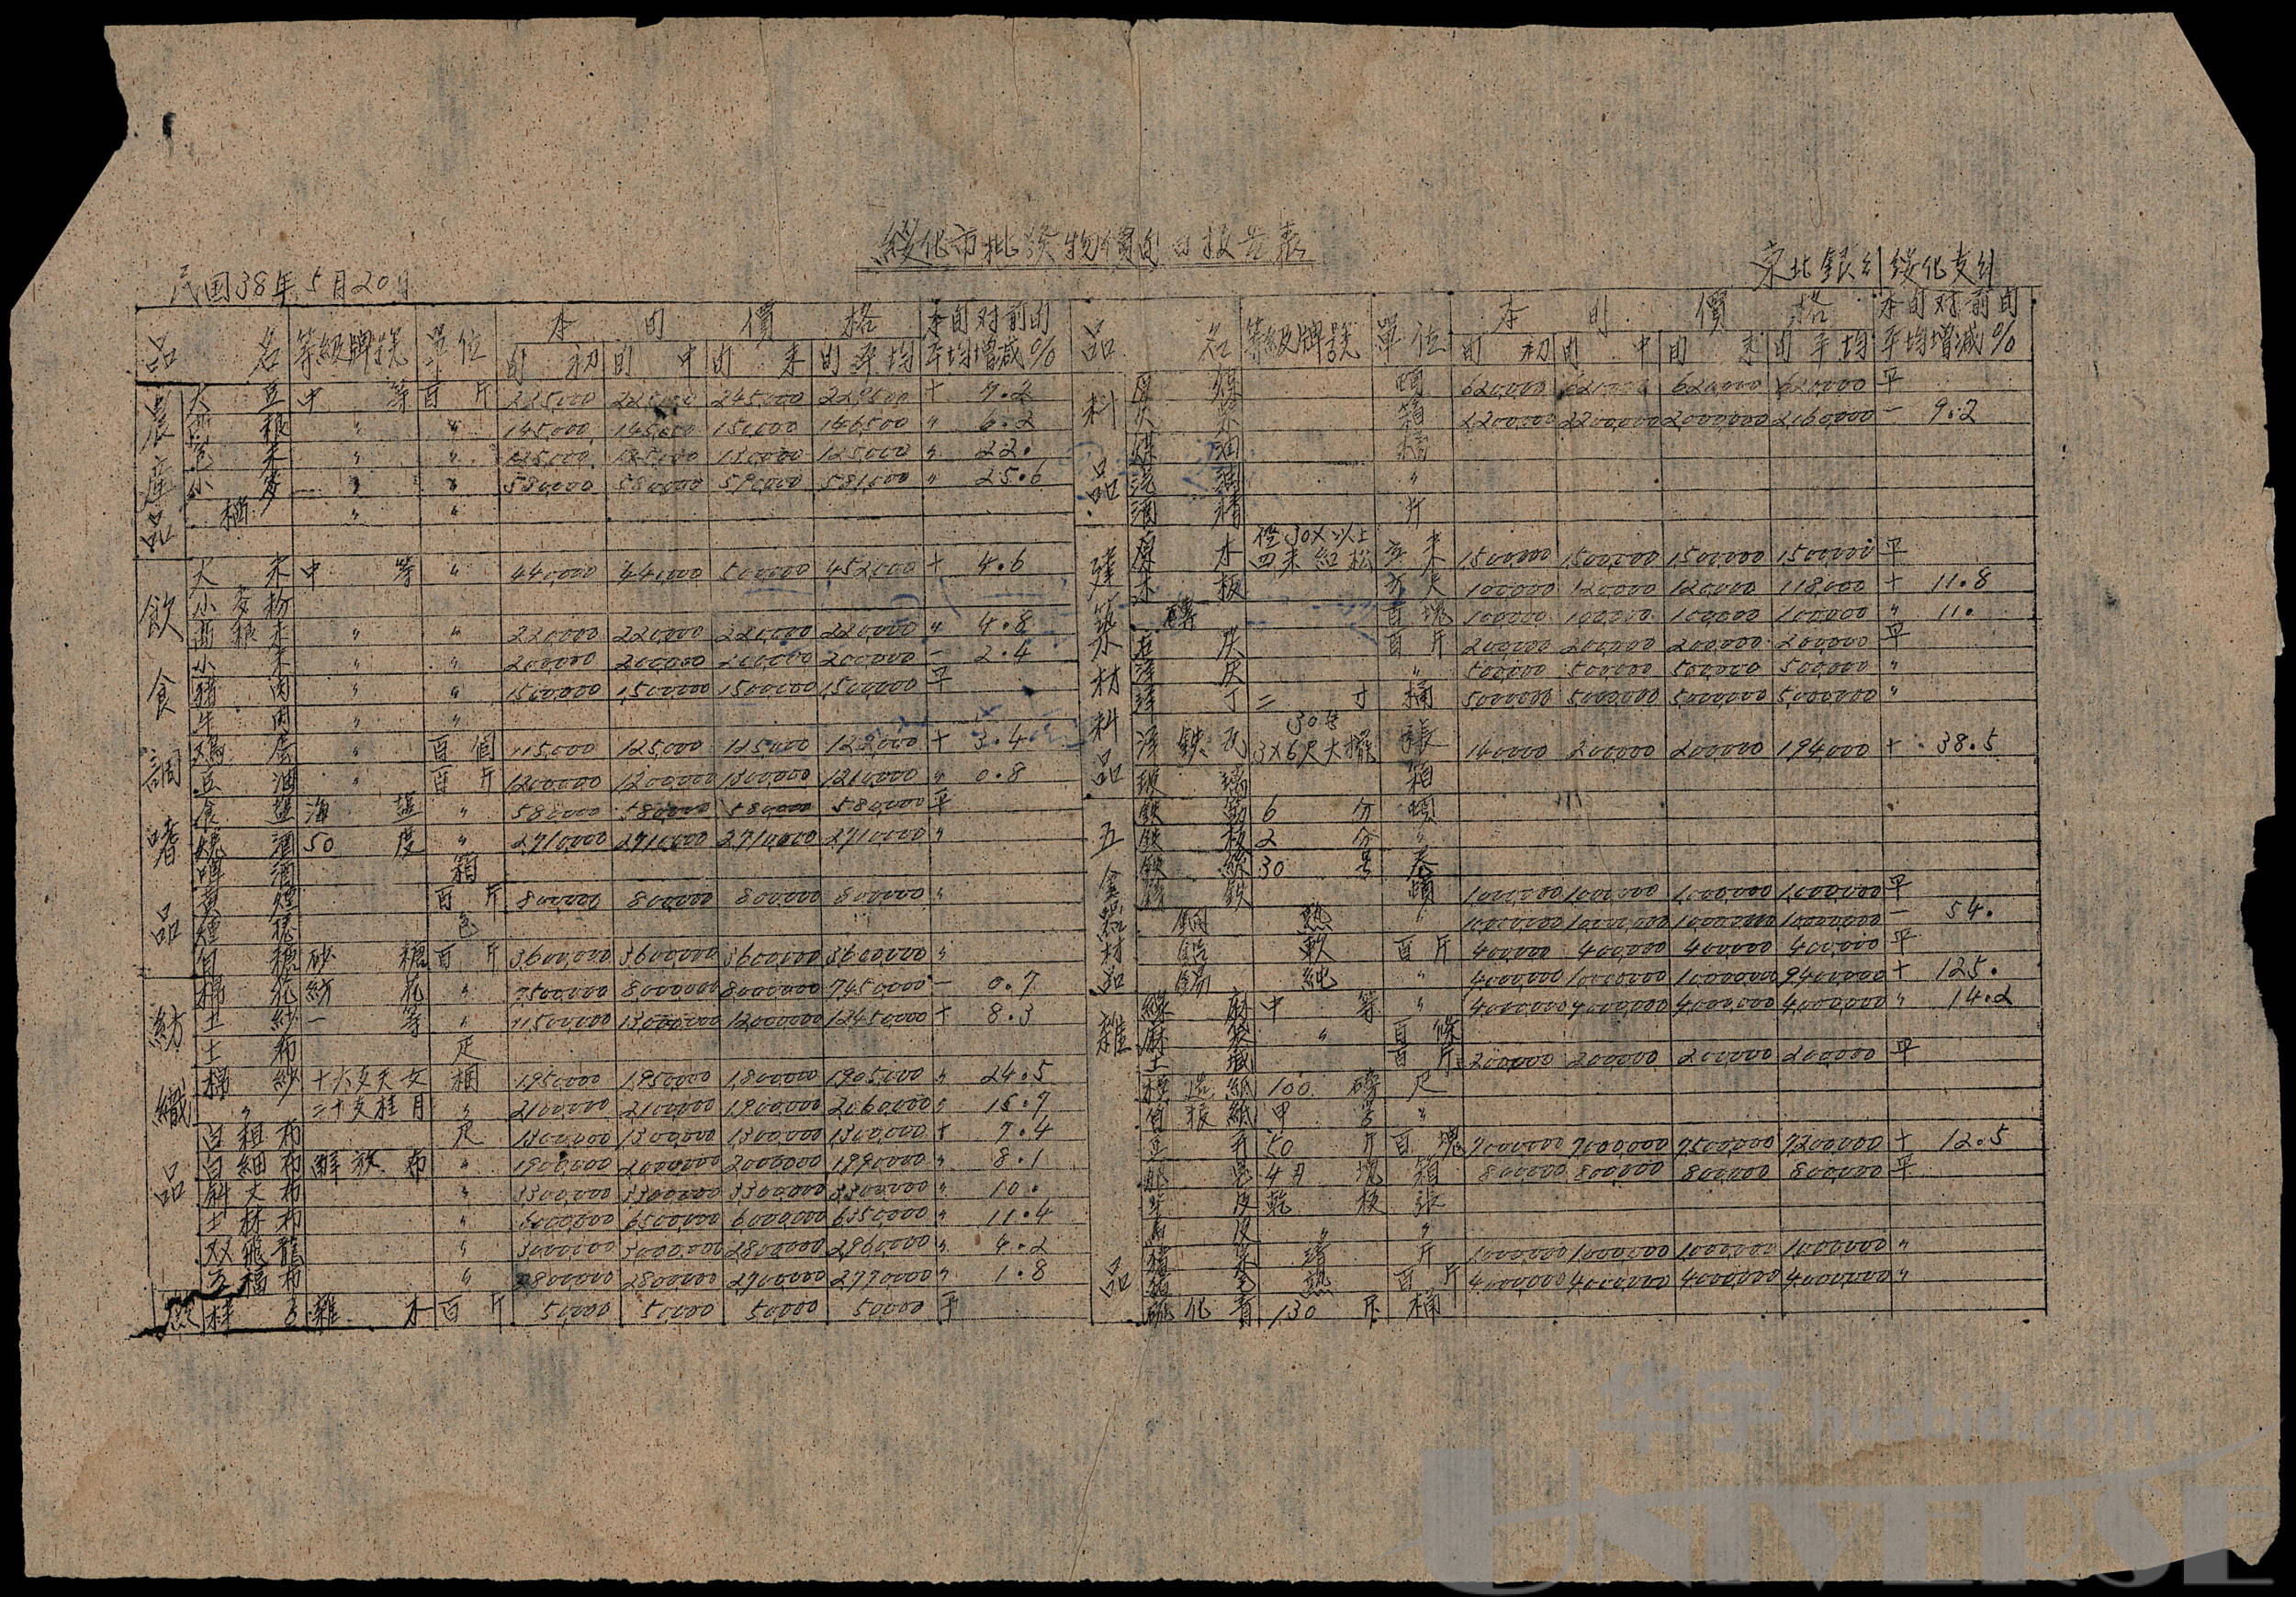 綏化市批發物價旬日报告表
民国38年5月20日
東北銀行綏化支行
品 名 等級牌號 單位 本旬價格 本旬对前旬平均增减%
旬初 旬中 旬末 旬平均
農産品
大豆 中等 百斤 225000 225000 245000 229500 + 7.2
高粮 〃 〃 145000 145000 150000 146500 〃 6.2
〃 〃 125000 125000 130000 125000 〃 22.
小麥 〃 〃 580000 580000 590000 581000 〃 25.6
〃 〃
飲食調嗜品
大米 中等 〃 440000 440000 500000 452000 + 4.6
小麥粉
高粮米 〃 〃 220000 220000 220000 220000 〃 4.8
小米 〃 〃 200000 200000 200000 200000 - 2.4
豬肉 〃 〃 1500000 1500000 1500000 1500000 平
牛肉 〃 〃
鷄蛋 〃 百個 115000 125000 125000 122000 + 3.4
豆油 〃 百斤 1200000 1200000 1300000 1210000 〃 0.8
食塩 海塩 〃 580000 580000 580000 580000 平
燒酒 50度 〃 2710000 2710000 2710000 2710000 〃
啤酒 箱
黄煙 百斤 800000 800000 800000 800000 〃
煙捲 包
白糖 砂糖 百斤 3600000 3600000 3600000 3600000 〃
紡織品
棉花 紡花 〃 7500000 8000000 8000000 7450000 - 0.7
土紗 一等 〃 11500000 13000000 12000000 12450000 + 8.3
土布 疋
棉紗 十六支天女 捆 1950000 1950000 1800000 1905000 〃 24.5
〃 二十支桂月 〃 2100000 2100000 1900000 2060000 〃 15.7
白粗布 疋 1300000 1300000 1300000 1300000 + 7.4
白細布 解放布 〃 1900000 2000000 2000000 1990000 〃 8.1
斜文布 〃 3300000 3300000 3300000 3300000 〃 10.
士林布 〃 6000000 6500000 6000000 6350000 〃 11.4
双飛龍 〃 3000000 3000000 2800000 2960000 〃 4.2
五福布 〃 2800000 2800000 2700000 2770000 〃 1.8
燃 柈子 雜木 百斤 50000 50000 50000 50000 平
品 名 等級牌號 單位 本旬價格 本旬对前旬平均增减%
旬初 旬中 旬末 旬平均
料品
煤 噸 620000 620000 620000 620000 平
火柴 箱 2200000 2200000 2000000 2160000 - 9.2
煤油 桶
汽油 〃
酒精 斤
建築木材料品
原木 径30X以上四米紅松 立米 1500000 1500000 1500000 1500000 平
木板 方尺 100000 120000 120000 118000 + 11.8
磚 百塊 100000 100000 100000 100000 〃 11.
石灰 百斤 200000 200000 200000 200000 平
洋灰 〃 500000 500000 500000 500000 〃
洋丁 二寸 桶 5000000 5000000 5000000 5000000 〃
洋鉄瓦 30号3X6尺大張 張 140000 200000 200000 194000 + 38.5
玻璃 箱
五金器材品
鉄筋 6分 噸
鉄板 2分 〃
鉄絲 30号 卷
鉄 噸 1000000 1000000 1000000 1000000 平
銅 熟 〃 10000000 10000000 10000000 10000000 - 54.
鉛 軟 百斤 400000 400000 400000 400000 平
錫 純 〃 4000000 10000000 10000000 9400000 + 125.
雜品
線麻 中等 〃 4000000 4000000 4000000 4000000 〃 14.2
麻袋 〃 百條
土碱 百斤 200000 200000 200000 200000 平
模造紙 100磅 尺
白報紙 甲等 〃
豆餅 50斤 百塊 7000000 7000000 7500000 7200000 + 12.5
肥皂 4月塊 箱 800000 800000 800000 800000 平
牛皮 乾板 張
馬皮 〃 〃
豬鬃 斤 1000000 1000000 1000000 1000000 〃
豬毛 熟 百斤 4000000 4000000 4000000 4000000 〃
硫化青 130斤 桶
華宇 huabid.com
UNIVERSE